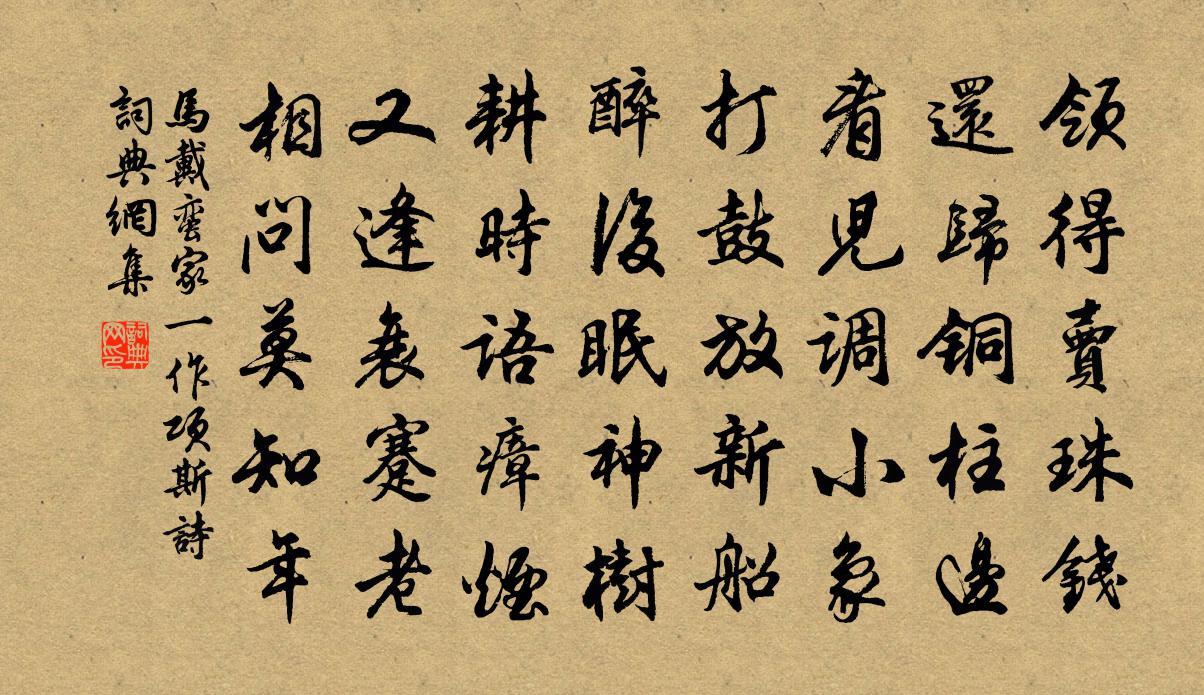 領得賣珠錢
還歸銅柱邊
看兒調小象
打鼓放新船
醉後眠神樹
耕時語瘴煙
又逢衰蹇老
相問莫知年
馬戴蛮家一作項斯詩
詞典網集
詞典网印